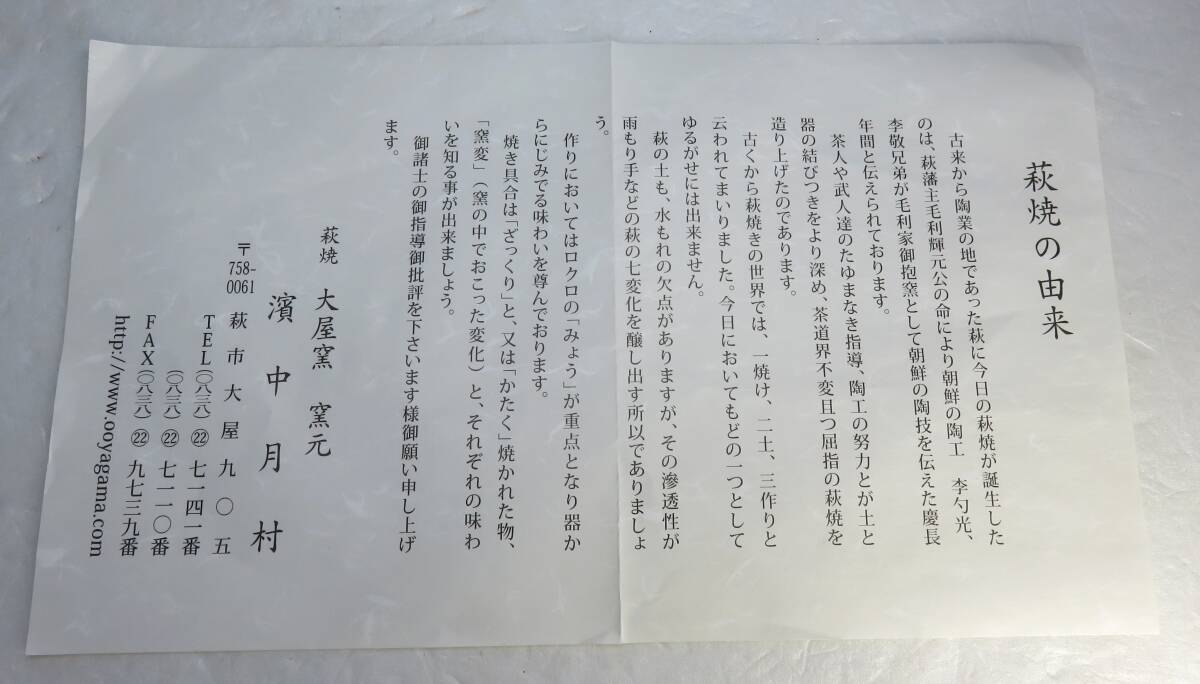 萩焼の由来
古来から陶業の地であった萩に今日の萩焼が誕生した
のは、萩藩主毛利輝元公の命により朝鮮の陶工　李勺光、
李敬兄弟が毛利家御抱窯として朝鮮の陶技を伝えた慶長
年間と伝えられております。
茶人や武人達のたゆまなき指導、陶工の努力とが土と
器の結びつきをより深め、茶道界不変且つ屈指の萩焼を
造り上げたのであります。
古くから萩焼きの世界では、一焼け、二土、三作りと
云われてまいりました。今日においてもどの一つとして
ゆるがせには出来ません。
萩の土も、水もれの欠点がありますが、その滲透性が
雨もり手などの萩の七変化を醸し出す所以でありましょ
う。
作りにおいてはロクロの「みょう」が重点となり器か
らにじみでる味わいを尊んでおります。
焼き具合は「ざっくり」と、又は「かたく」焼かれた物、
「窯変」（窯の中でおこった変化）と、それぞれの味わ
いを知る事が出来ましょう。
御諸士の御指導御批評を下さいます様御願い申し上げ
ます。
萩焼　大屋窯　窯元
濱中月村
〒758-0061　萩市大屋九〇五
TEL（〇八三八）㉒七一四一番
（〇八三八）㉒七一一〇番
FAX（〇八三八）㉒九七三九番
http://www.ooyagama.com